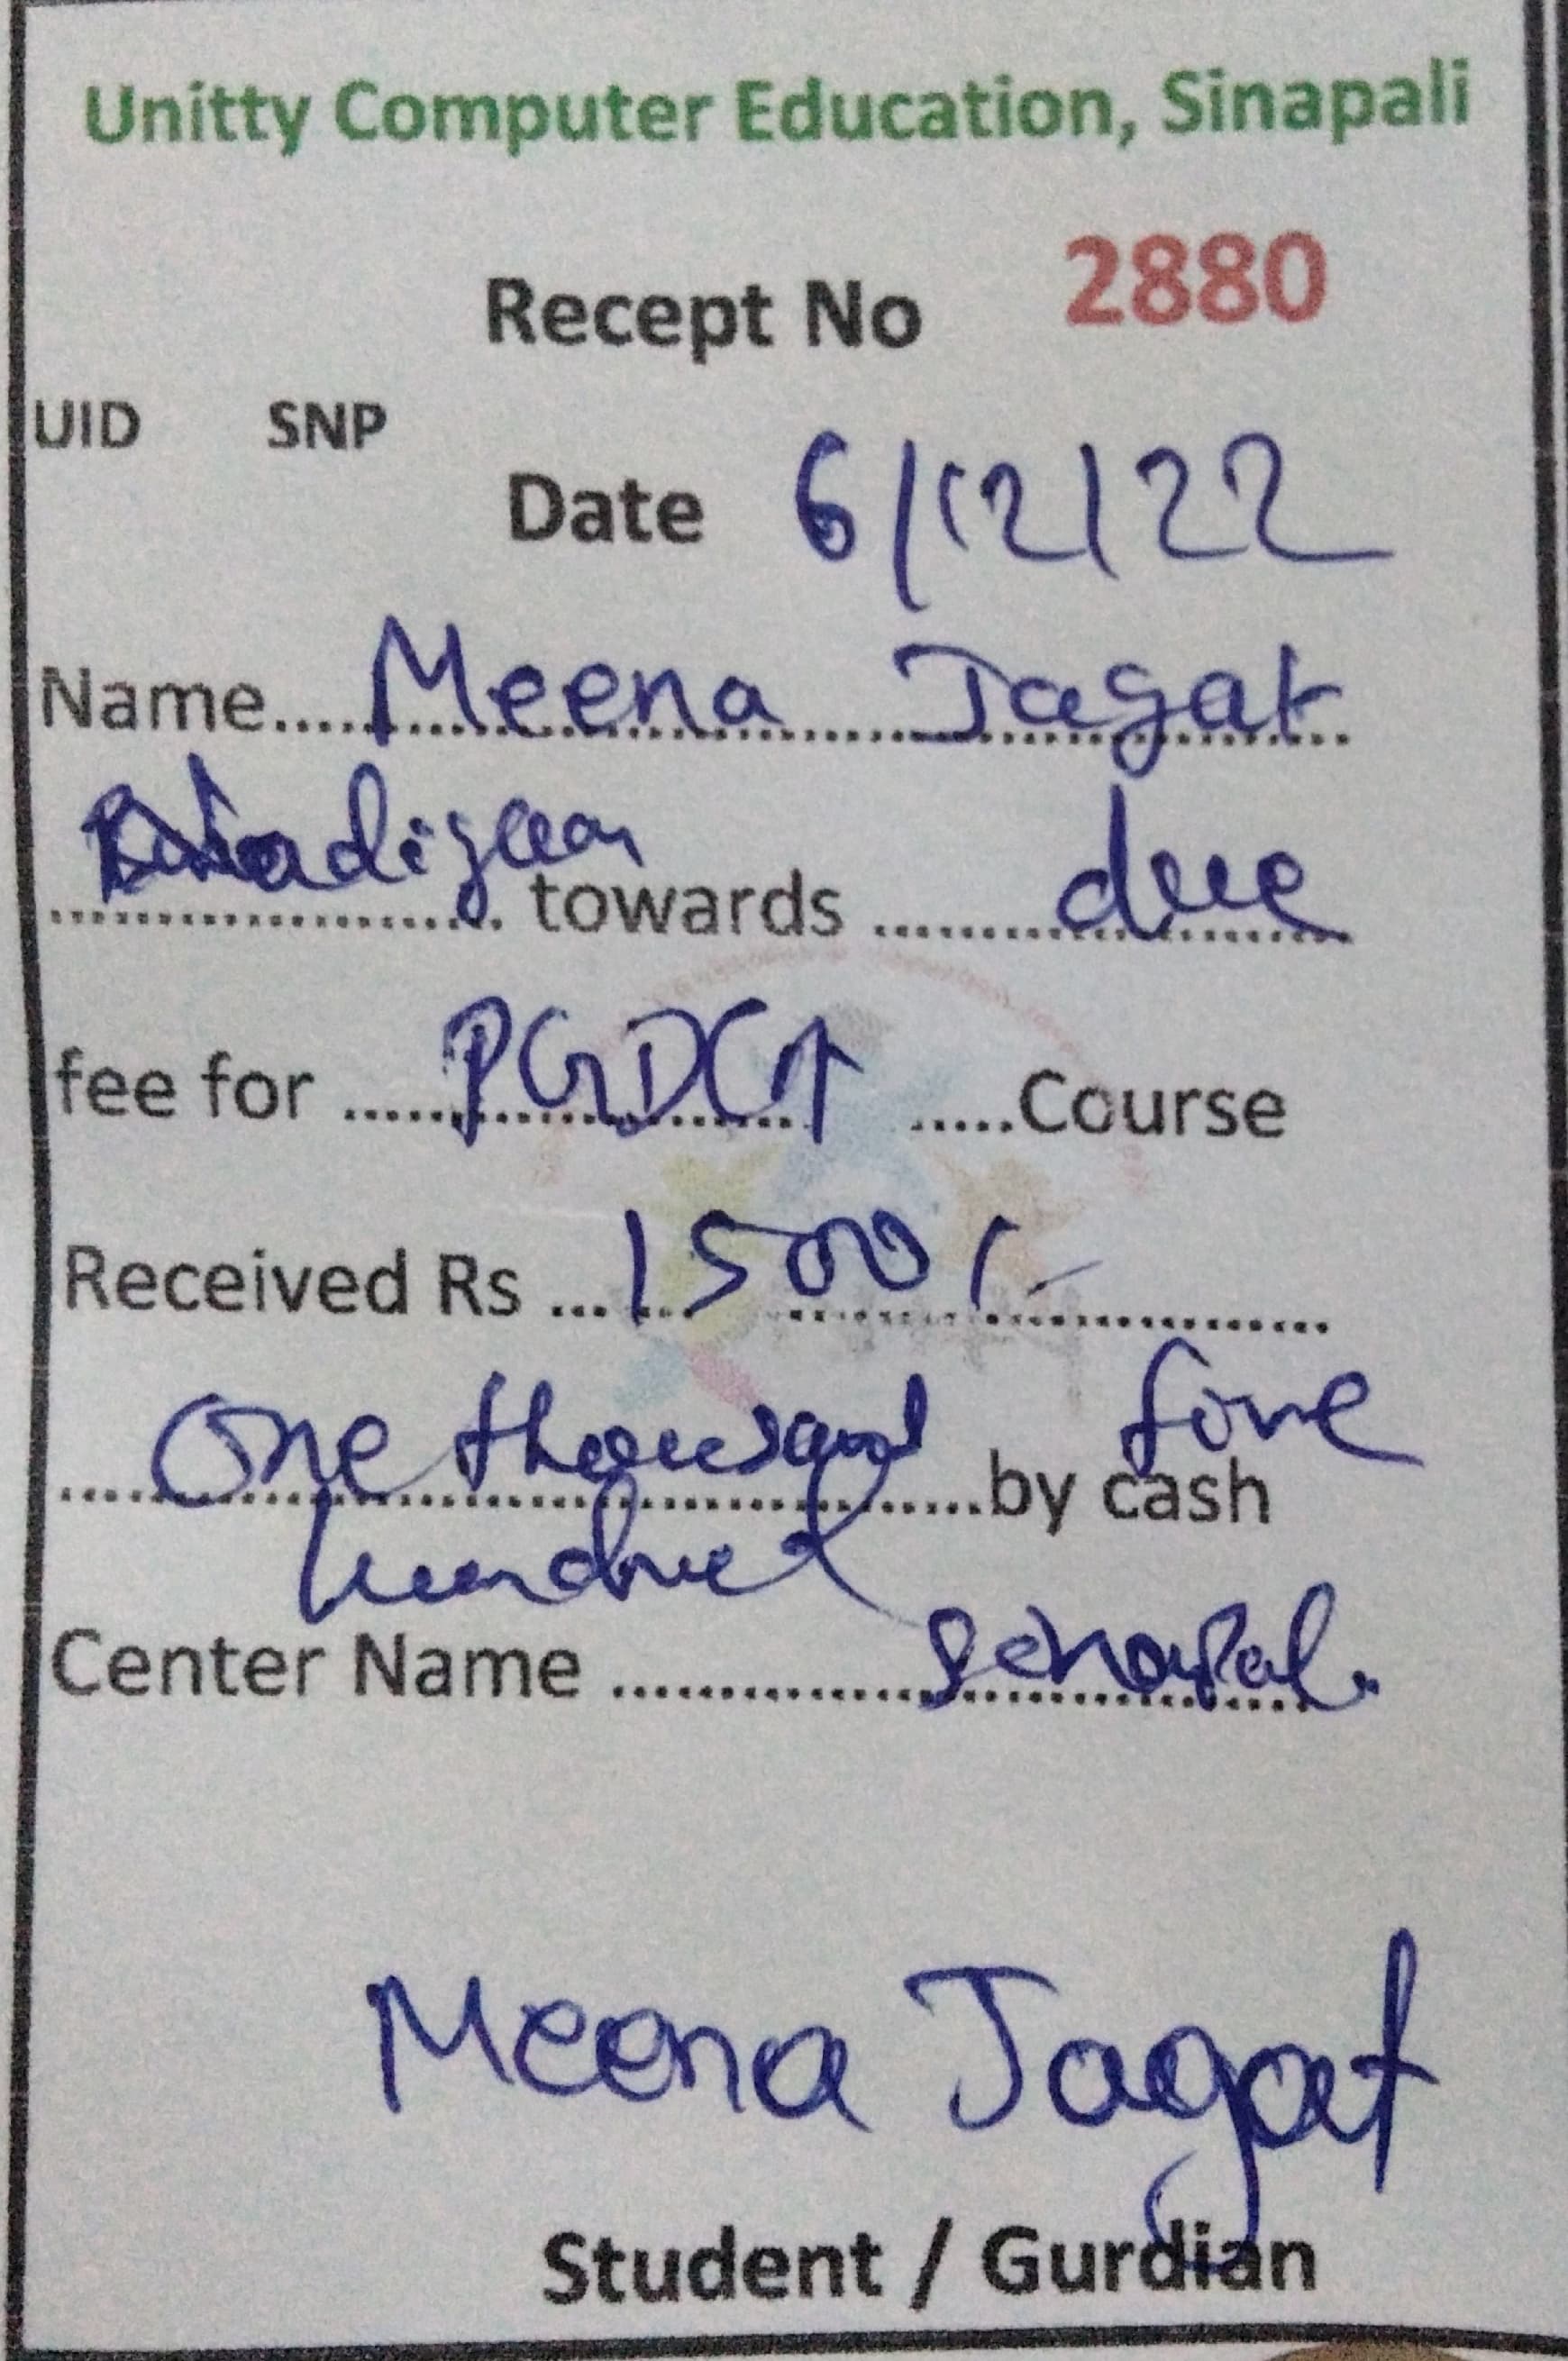 Unitty Computer Education, Sinapali
Recept No 2880
UID SNP
Date 6/12/22
Name..... Meena Jagat
..... towards ..... due
fee for ..... PGDCA .....Course
Received Rs ... 1500/-
One thousand five
.....by cash
hundred
Center Name .....
Meena Jagat
Student / Gurdian